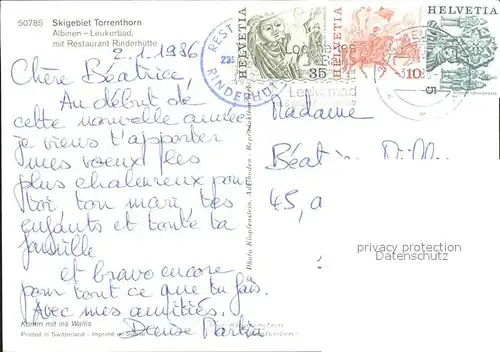 50785 Skigebiet Torrenthorn
Albinen – Leukerbad,
mit Restaurant Rinderhütte
2.1.1986
Chère Béatrice,
Au début de
cette nouvelle année
je viens t'apporter
mes voeux les
plus chaleureux pour
toi ton mari tes
enfants et toute ta
famille
et bravo encore
pour tout ce que tu fais.
Avec mes amitiés.
Denise Martin
Komm mit ins Wallis
Printed in Switzerland – Imprimé en
REST
RINDERHÜTTE
HELVETIA
35
HELVETIA
10
HELVETIA
5
Leukerbad
Photo Klopfenstein, Adelboden
Madame
Béatrice
45, a
privacy protection
Datenschutz